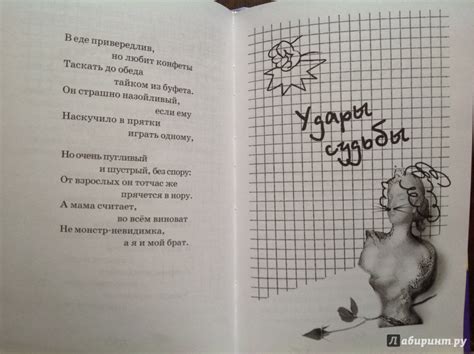 В еде привередлив,
но любит конфеты
Таскать до обеда
тайком из буфета.
Он страшно назойливый,
если ему
Наскучило в прятки
играть одному,
Но очень пугливый
и шустрый, без спору:
От взрослых он тотчас же
прячется в нору.
А мама считает,
во всём виноват
Не монстр-невидимка,
а я и мой брат.
Удары
судьбы
Лабиринт.ру